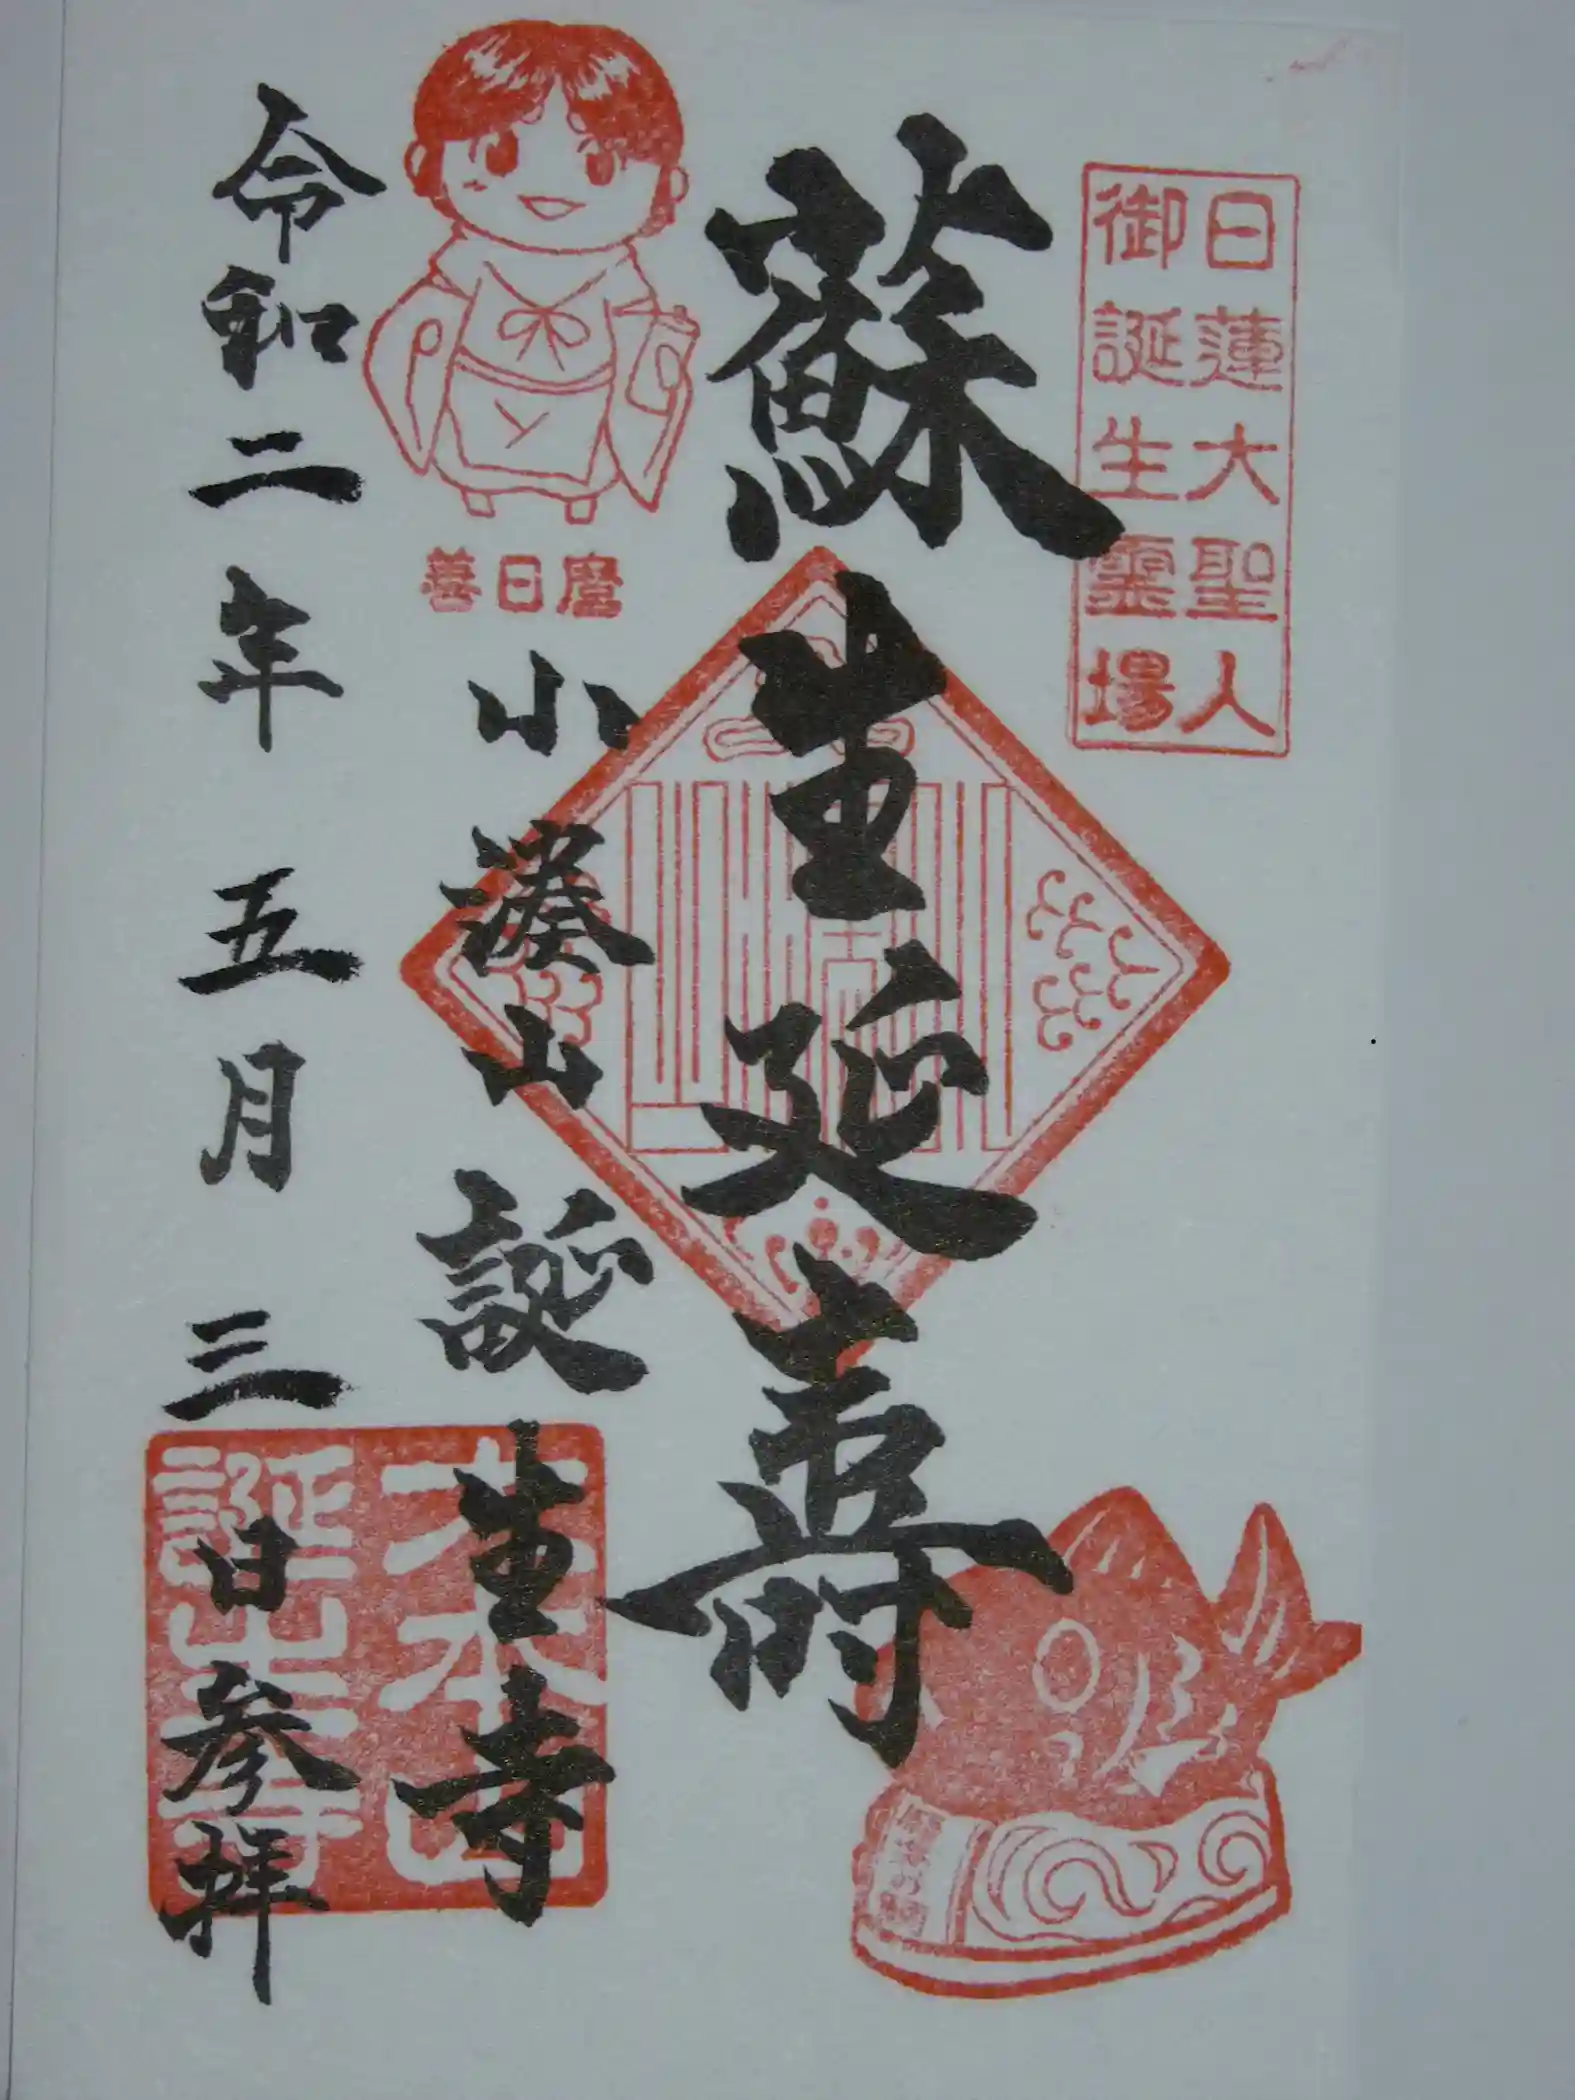 日蓮大聖人
御誕生霊場
蘇生延壽
善日麿
小湊山 誕生寺
令和二年 五月 三日参拝
大本山
誕生寺